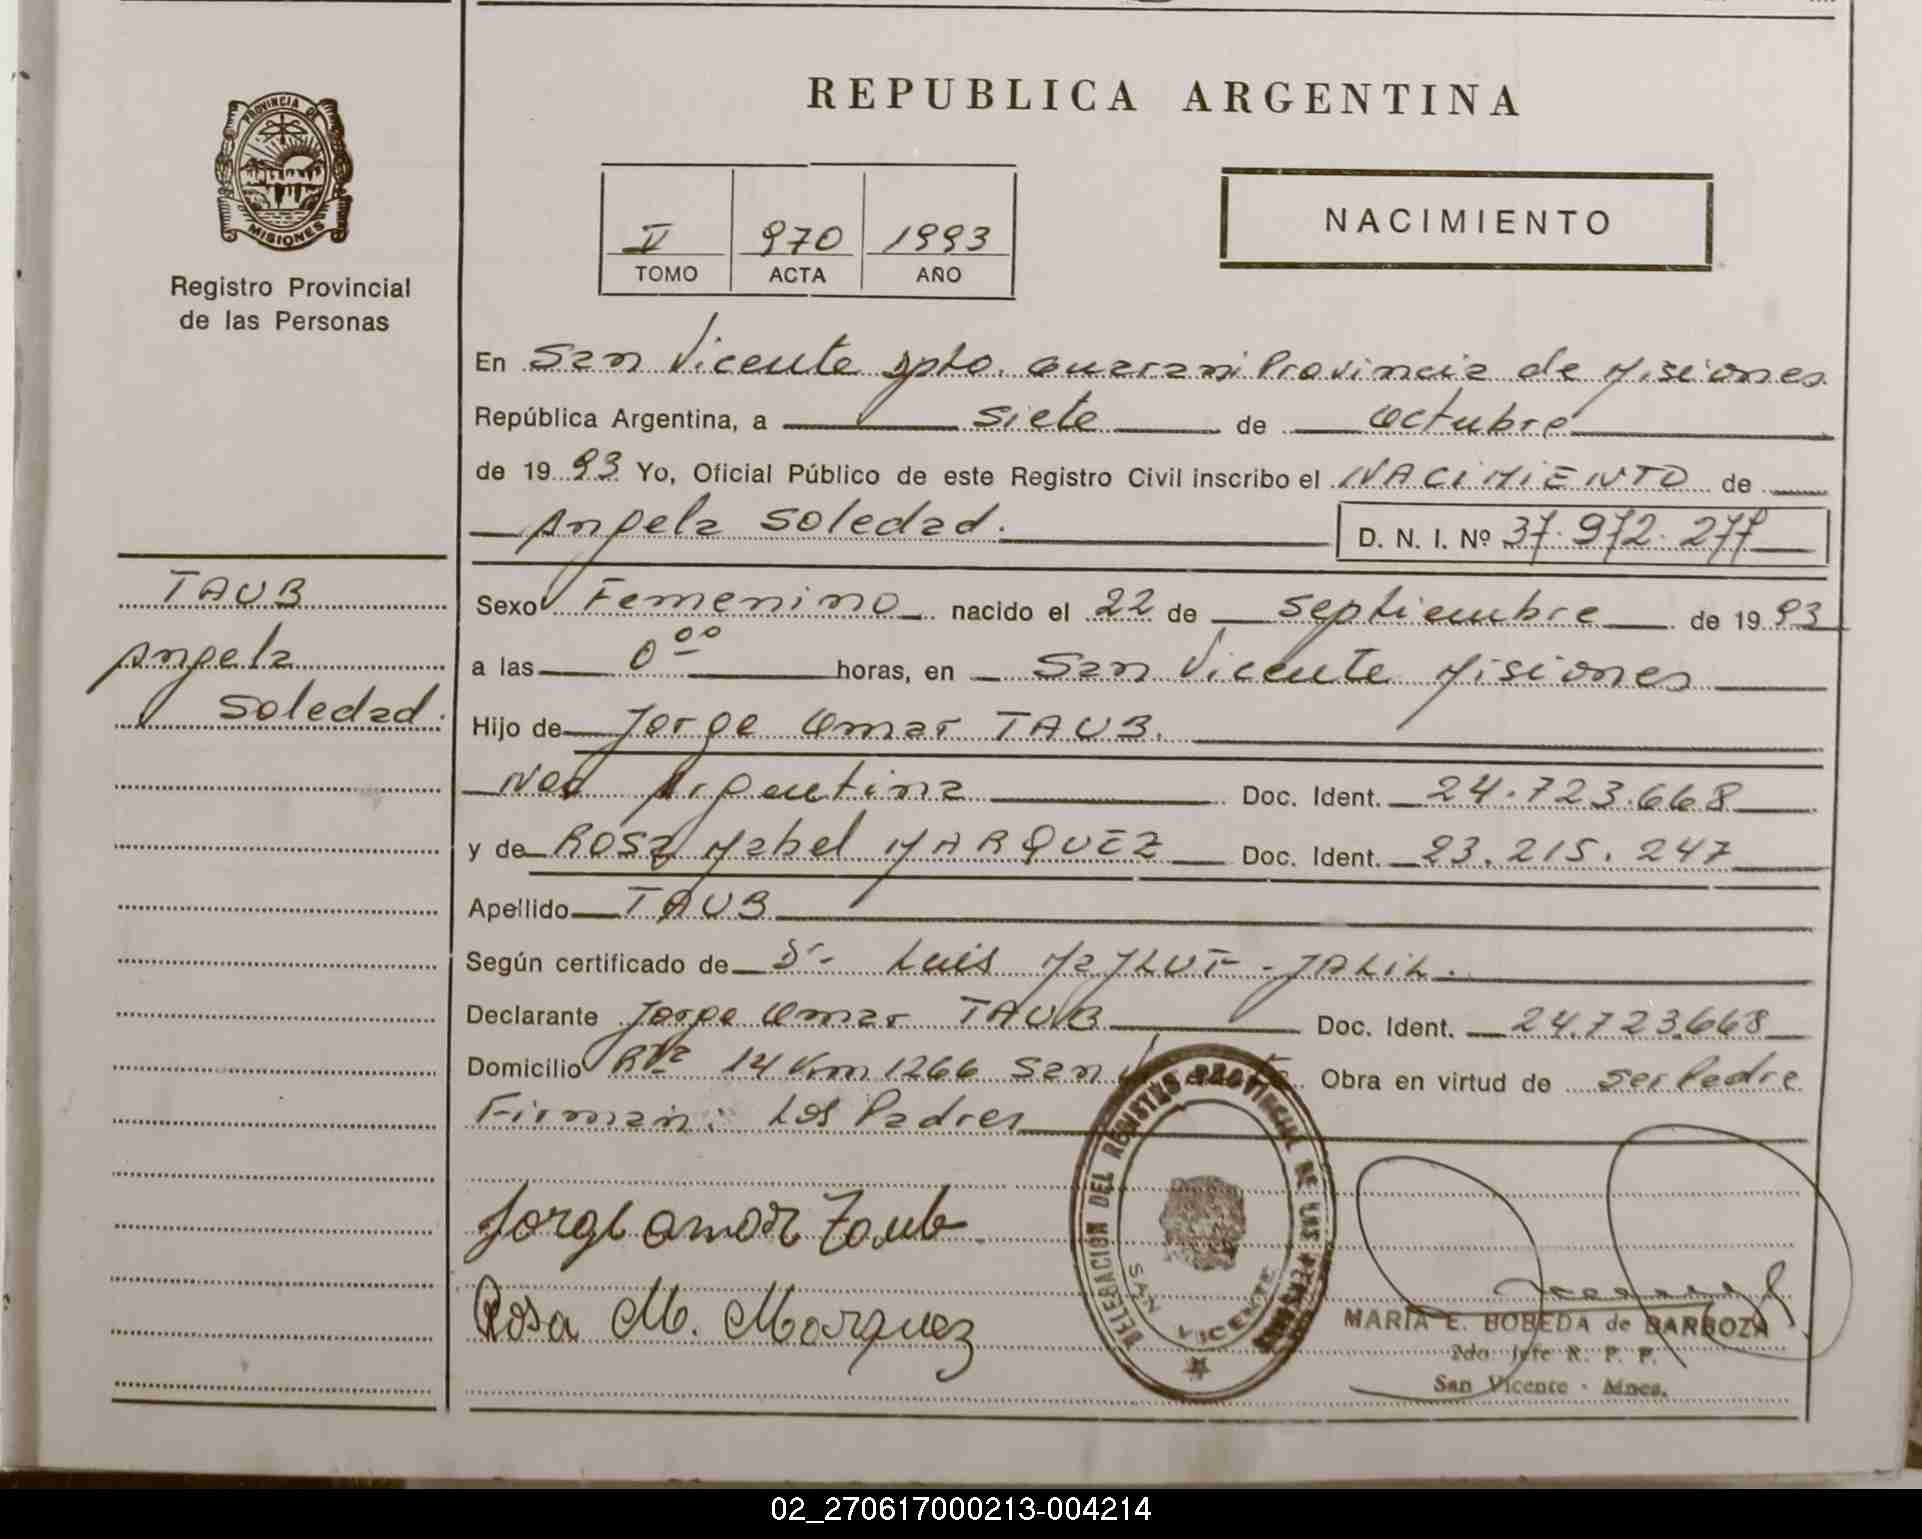 REPUBLICA ARGENTINA
PROVINCIA DE
MISIONES
Registro Provincial
de las Personas
V 970 1993
TOMO ACTA AÑO
NACIMIENTO
En San Vicente Dpto. Guarani Provincia de Misiones
República Argentina, a siete de Octubre
de 1993 Yo, Oficial Público de este Registro Civil inscribo el NACIMIENTO de
Angela Soledad. D. N. I. Nº 37.972.277
TAUB
Angela
Soledad.
Sexo Femenino nacido el 22 de septiembre de 1993
a las 0⁰⁰ horas, en San Vicente Misiones
Hijo de Jorge Omar TAUB.
Nac Argentina Doc. Ident. 24.723.668
y de Rosa Mabel MARQUEZ Doc. Ident. 23.215.247
Apellido TAUB
Según certificado de Dr. Luis JALIL.
Declarante Jorge Omar TAUB Doc. Ident. 24.723.668
Domicilio Rta 14 Km 1266 San Vicente. Obra en virtud de ser Padre
Firman: Los Padres
Jorge omar Taub
Rosa M. Marquez
DELEGACION DEL REGISTRO PROVINCIAL DE LAS PERSONAS
SAN VICENTE
MARIA E. BOBEDA de BARBOZA
2do Jefe R. P. P.
San Vicente - Mnes.
02_270617000213-004214